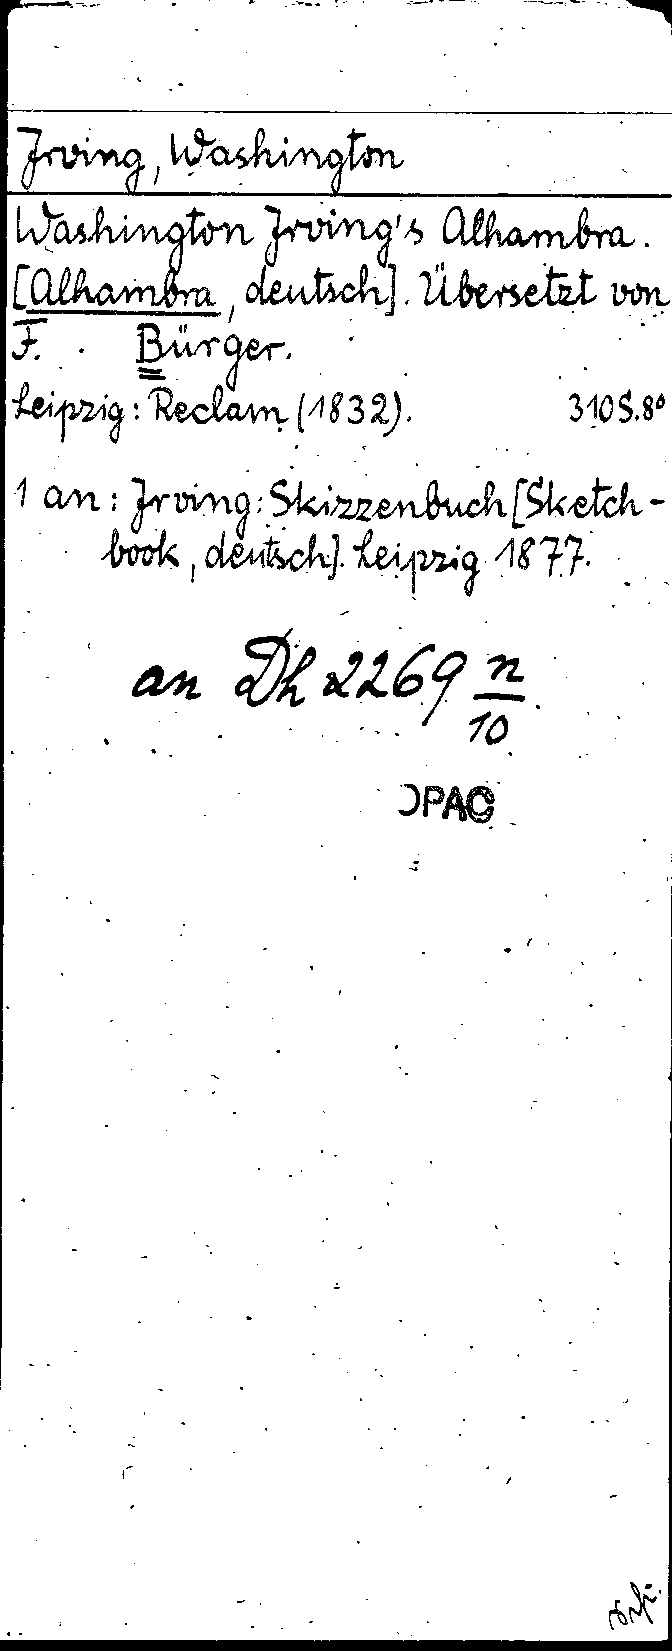 Irving, Washington
Washington Irving's Alhambra.
[Alhambra, deutsch]. Übersetzt von
F. Bürger.
Leipzig: Reclam (1832). 310 S. 8°
1 an: Irving: Skizzenbuch [Sketch-
book, deutsch]. Leipzig 1877.
an Dh 2269 n/10
OPAC